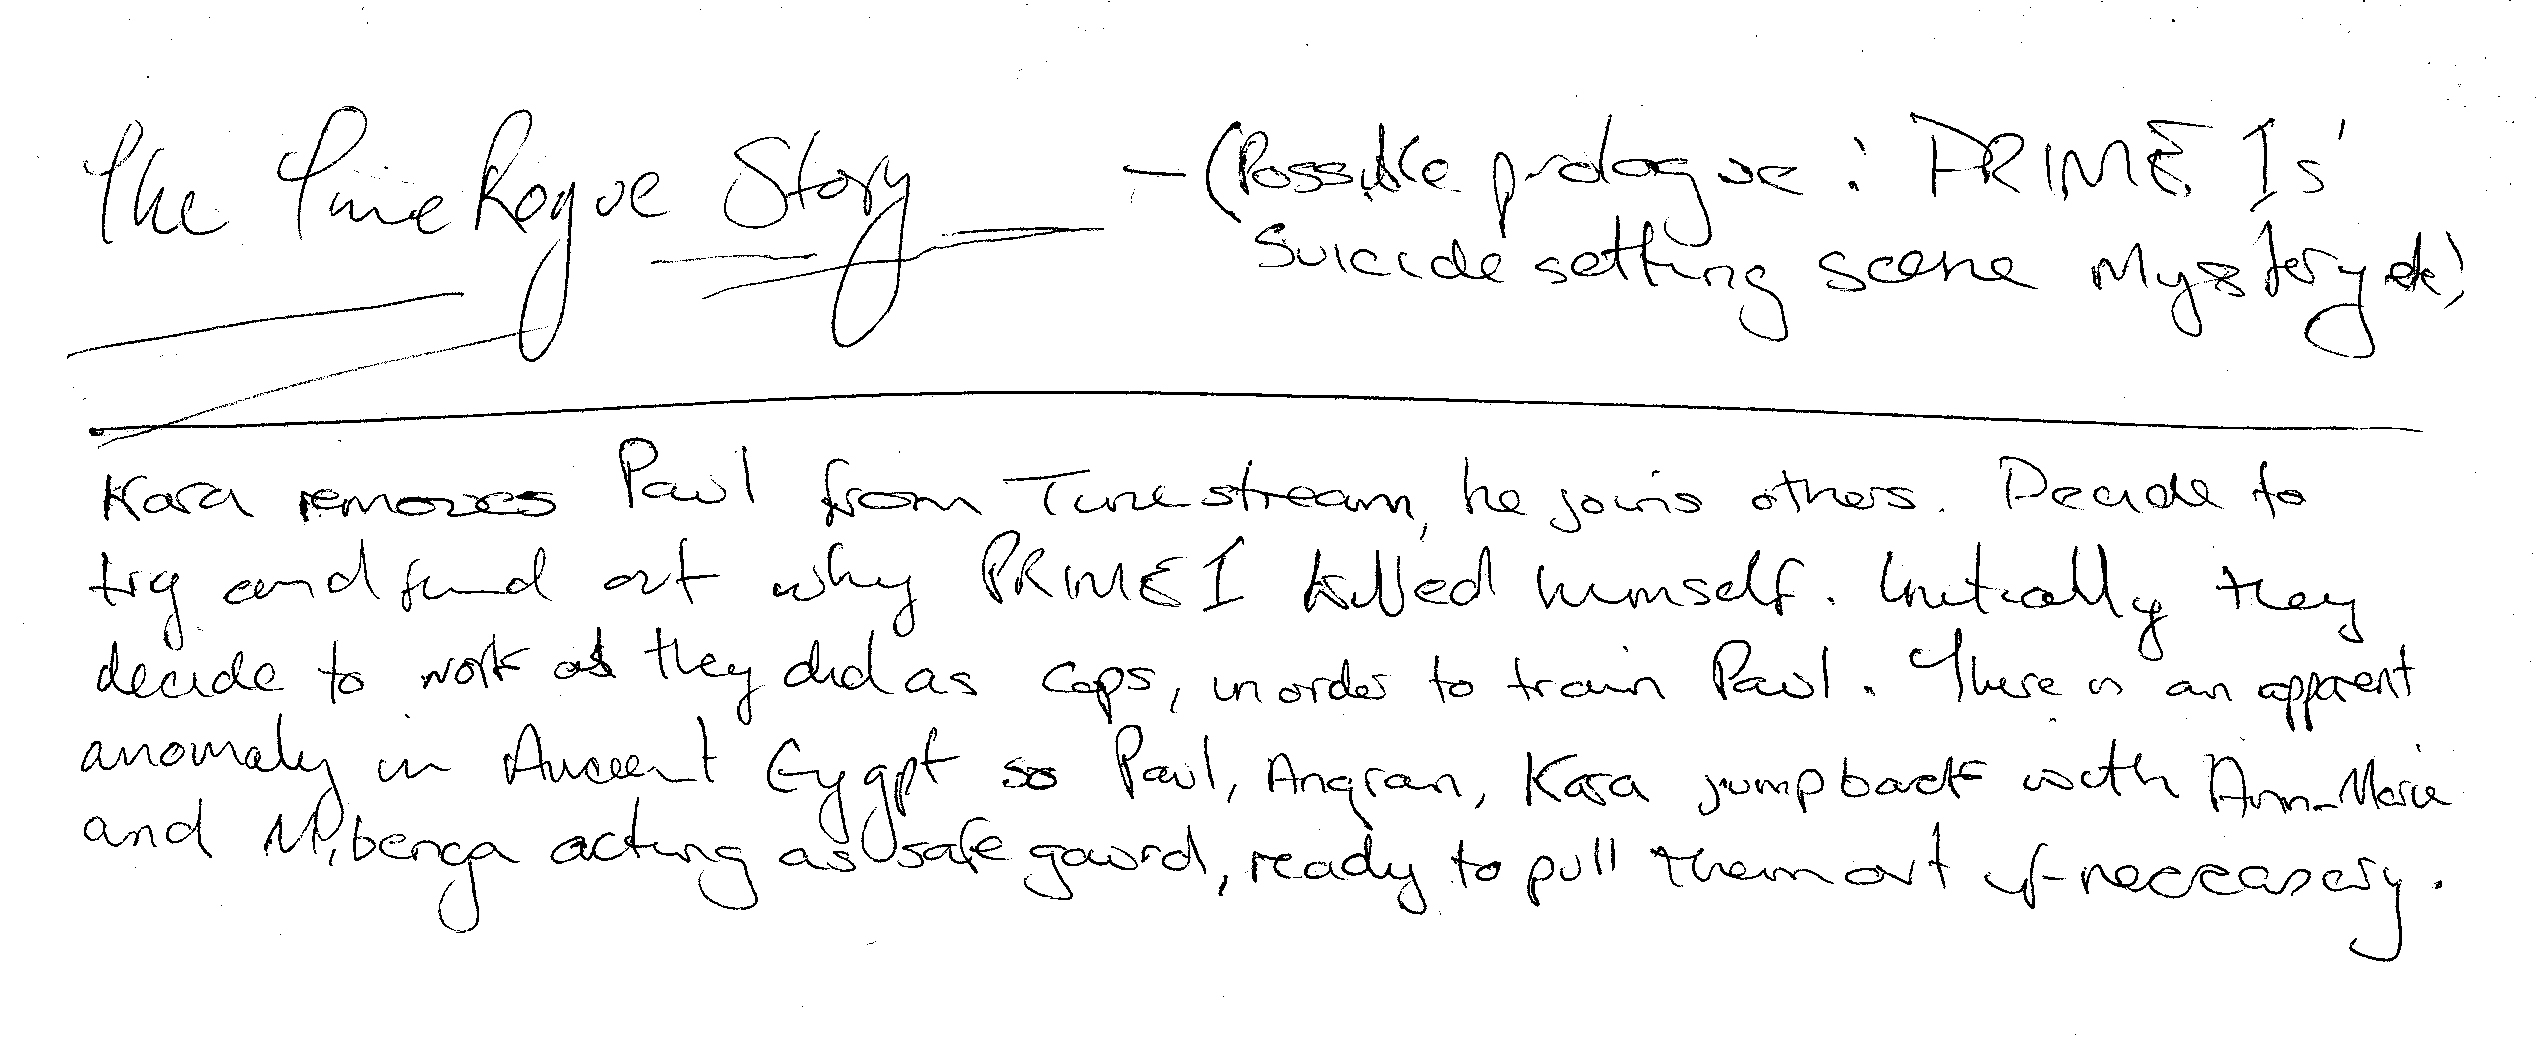 The Time Rogue Story - (Possible prologue: PRIME Is'
Suicide setting scene Mystery etc)
Kara removes Paul from Timestream, he joins others. Decide to
try and find out why PRIME I killed himself. Initially they
decide to work as they did as cops, in order to train Paul. There is an apparent
anomaly in Ancient Eygpt so Paul, Angran, Kara jump back with Ann-Marie
and M'benga acting as safe gaurd, ready to pull them out if neccesary.